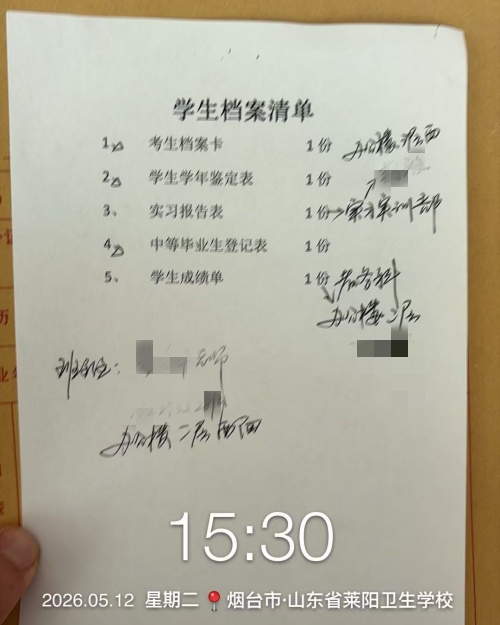 学生档案清单
1、 考生档案卡 1份 办公楼一层西
2、 学生学年鉴定表 1份
3、 实习报告表 1份→实习实训部
4、 中等毕业生登记表 1份
5、 学生成绩单 1份 教务科
办公楼二层
班主任: 老师
办公楼二层西面
15:30
2026.05.12 星期二 烟台市·山东省莱阳卫生学校